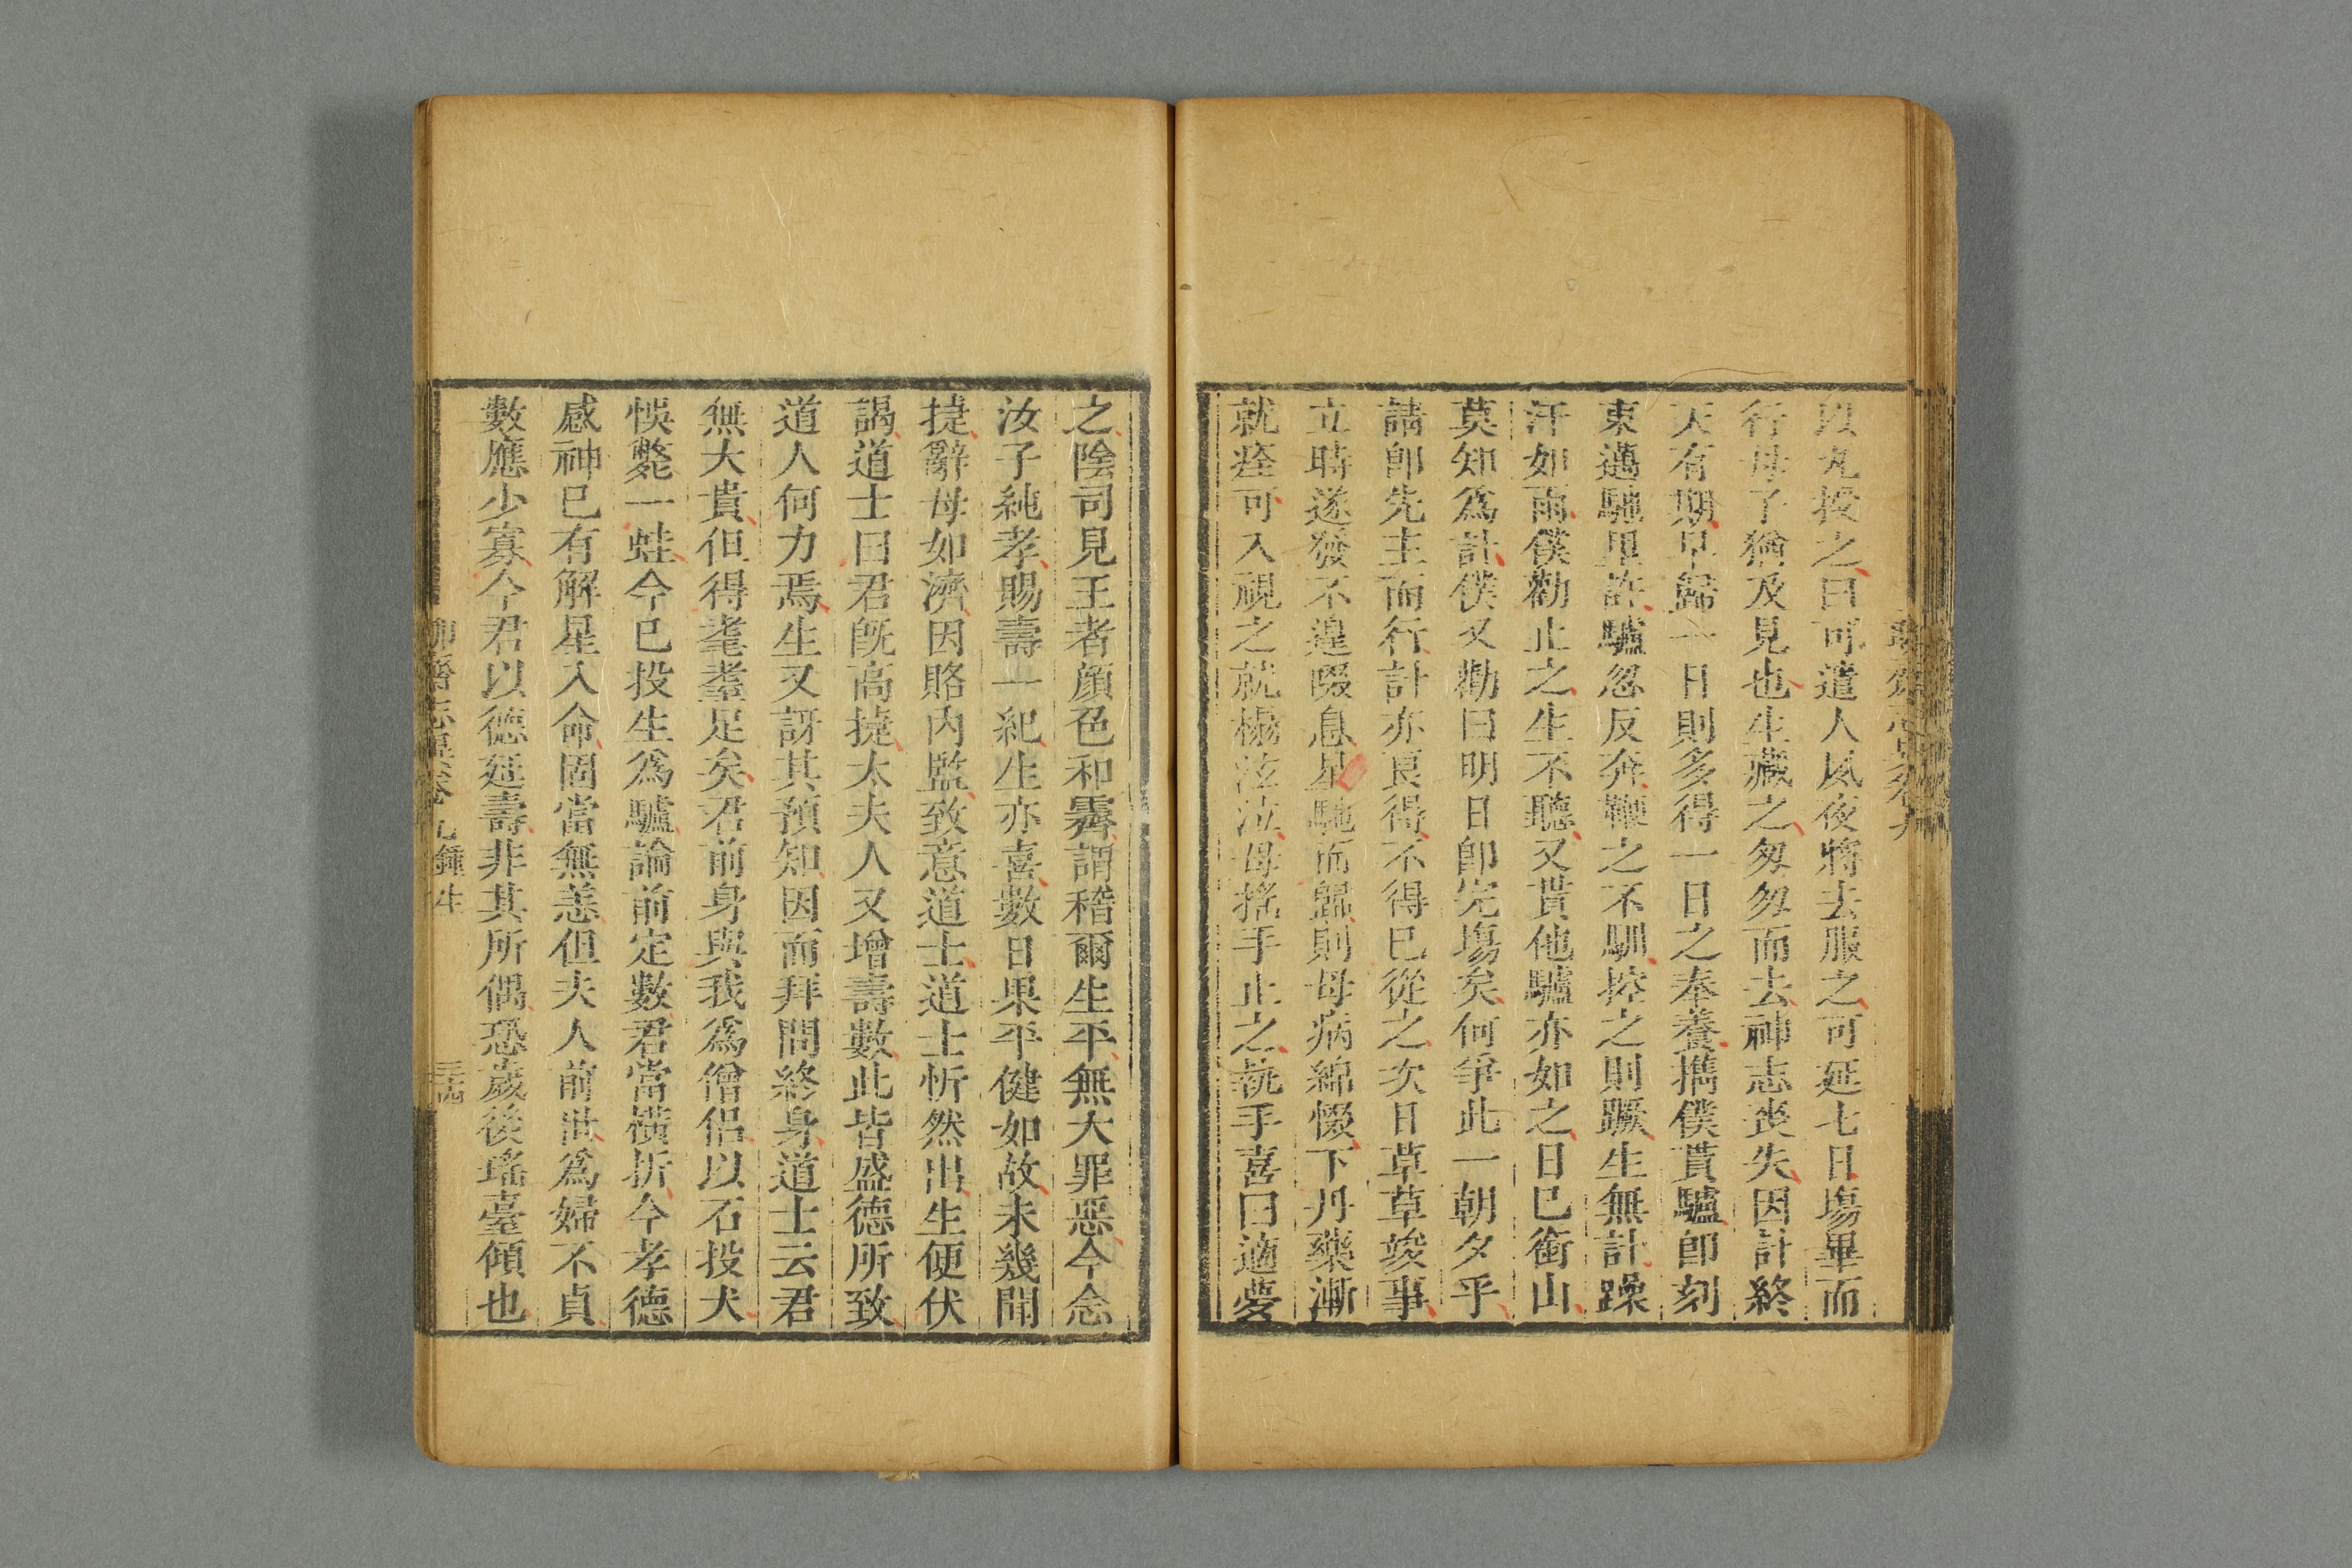 以丸授之曰可遣人夙夜將去服之可延七日場畢而
行母子猶及見也生藏之匆匆而去神志喪失因計終
天有期早歸一日則多得一日之奉養攜僕貰驢即刻
東邁馳里許驢忽反奔鞭之不馴控之則蹶生無計躁
汗如雨僕勸止之生不聽又貰他驢亦如之日已銜山
莫知為計僕又勸曰明日即完場矣何爭此一朝夕乎
請即先主而行計亦良得不得已從之次日草草竣事
立時遂發不遑啜息星馳而歸則母病綿惙下丹藥漸
就痊可入視之就榻泫泣母搖手止之執手喜曰適夢
之陰司見王者顏色和霽謂稽爾生平無大罪惡今念
汝子純孝賜壽一紀生亦喜數日果平健如故未幾聞
捷辭母如濟因賂內監致意道士道士忻然出生便伏
謁道士曰君既高捷太夫人又增壽數此皆盛德所致
道人何力焉生又訝其預知因而拜問終身道士云君
無大貴但得耄耋足矣君前身與我為僧侶以石投犬
悞斃一蛙今已投生為驢論前定數君當橫折今孝德
感神已有解星入命固當無恙但夫人前世為婦不貞
數應少寡今君以德延壽非其所偶恐歲後瑤臺傾也
聊齋志異卷九 鍾生 三十四